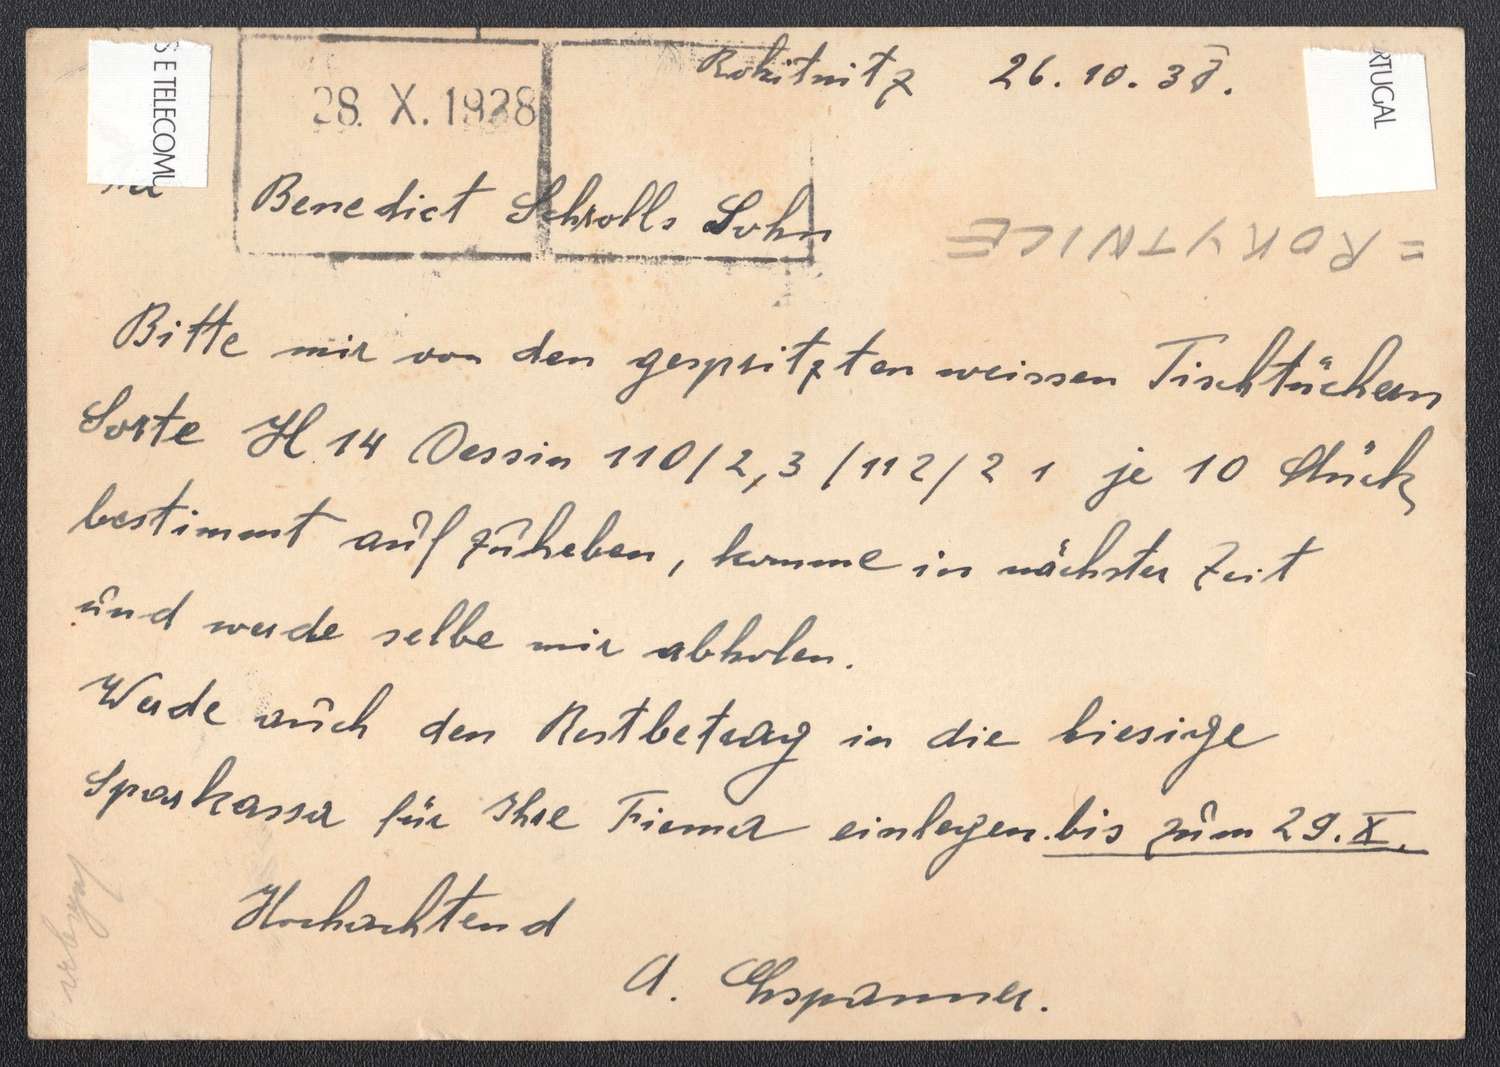 S E TELECOMU
RTUGAL
Rokitnitz 26.10.38.
28. X. 1938
Benedict Schrolls Sohn
= ROKYTNICE
Bitte mir von den gespritzten weissen Tischtüchern
Sorte H 14 Dessin 110/2,3 /112/2 1 je 10 Stück
bestimmt aufzuheben, komme in nächster Zeit
und werde selbe mir abholen.
Werde auch den Restbetrag in die hiesige
Sparkassa für Ihre Firma einlegen bis zum 29. X.
Hochachtend
A. Ehspanner.